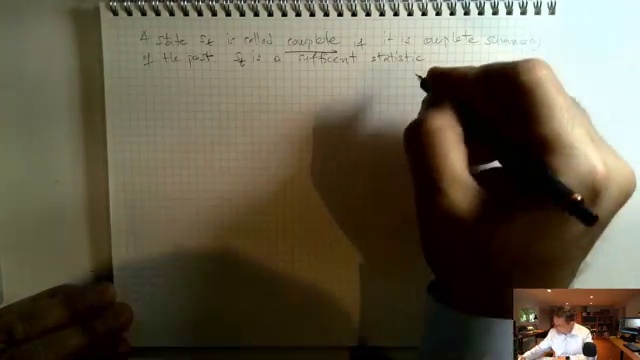 A state st is called complete if it is complete summary
of the past st is a sufficent statistic